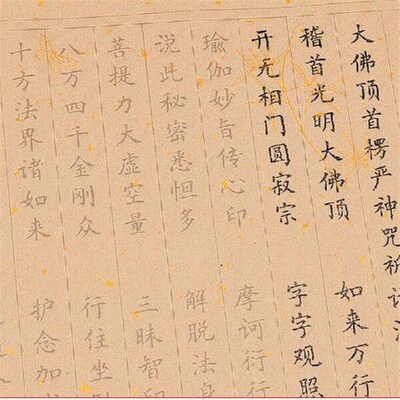 大佛顶首楞严神咒祈请法
稽首光明大佛顶 如来万行
开无相门圆寂宗 字字观照
瑜伽妙旨传心印 摩诃衍行
说此秘密悉怛多 解脱法身
菩提力大虚空量 三昧智印
八万四千金刚众 行住坐卧
十方法界诸如来 护念加